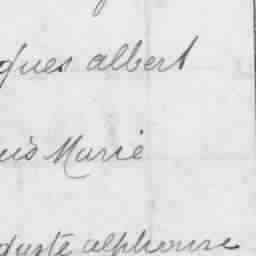 ques albert
uis Marie
guste alphonse